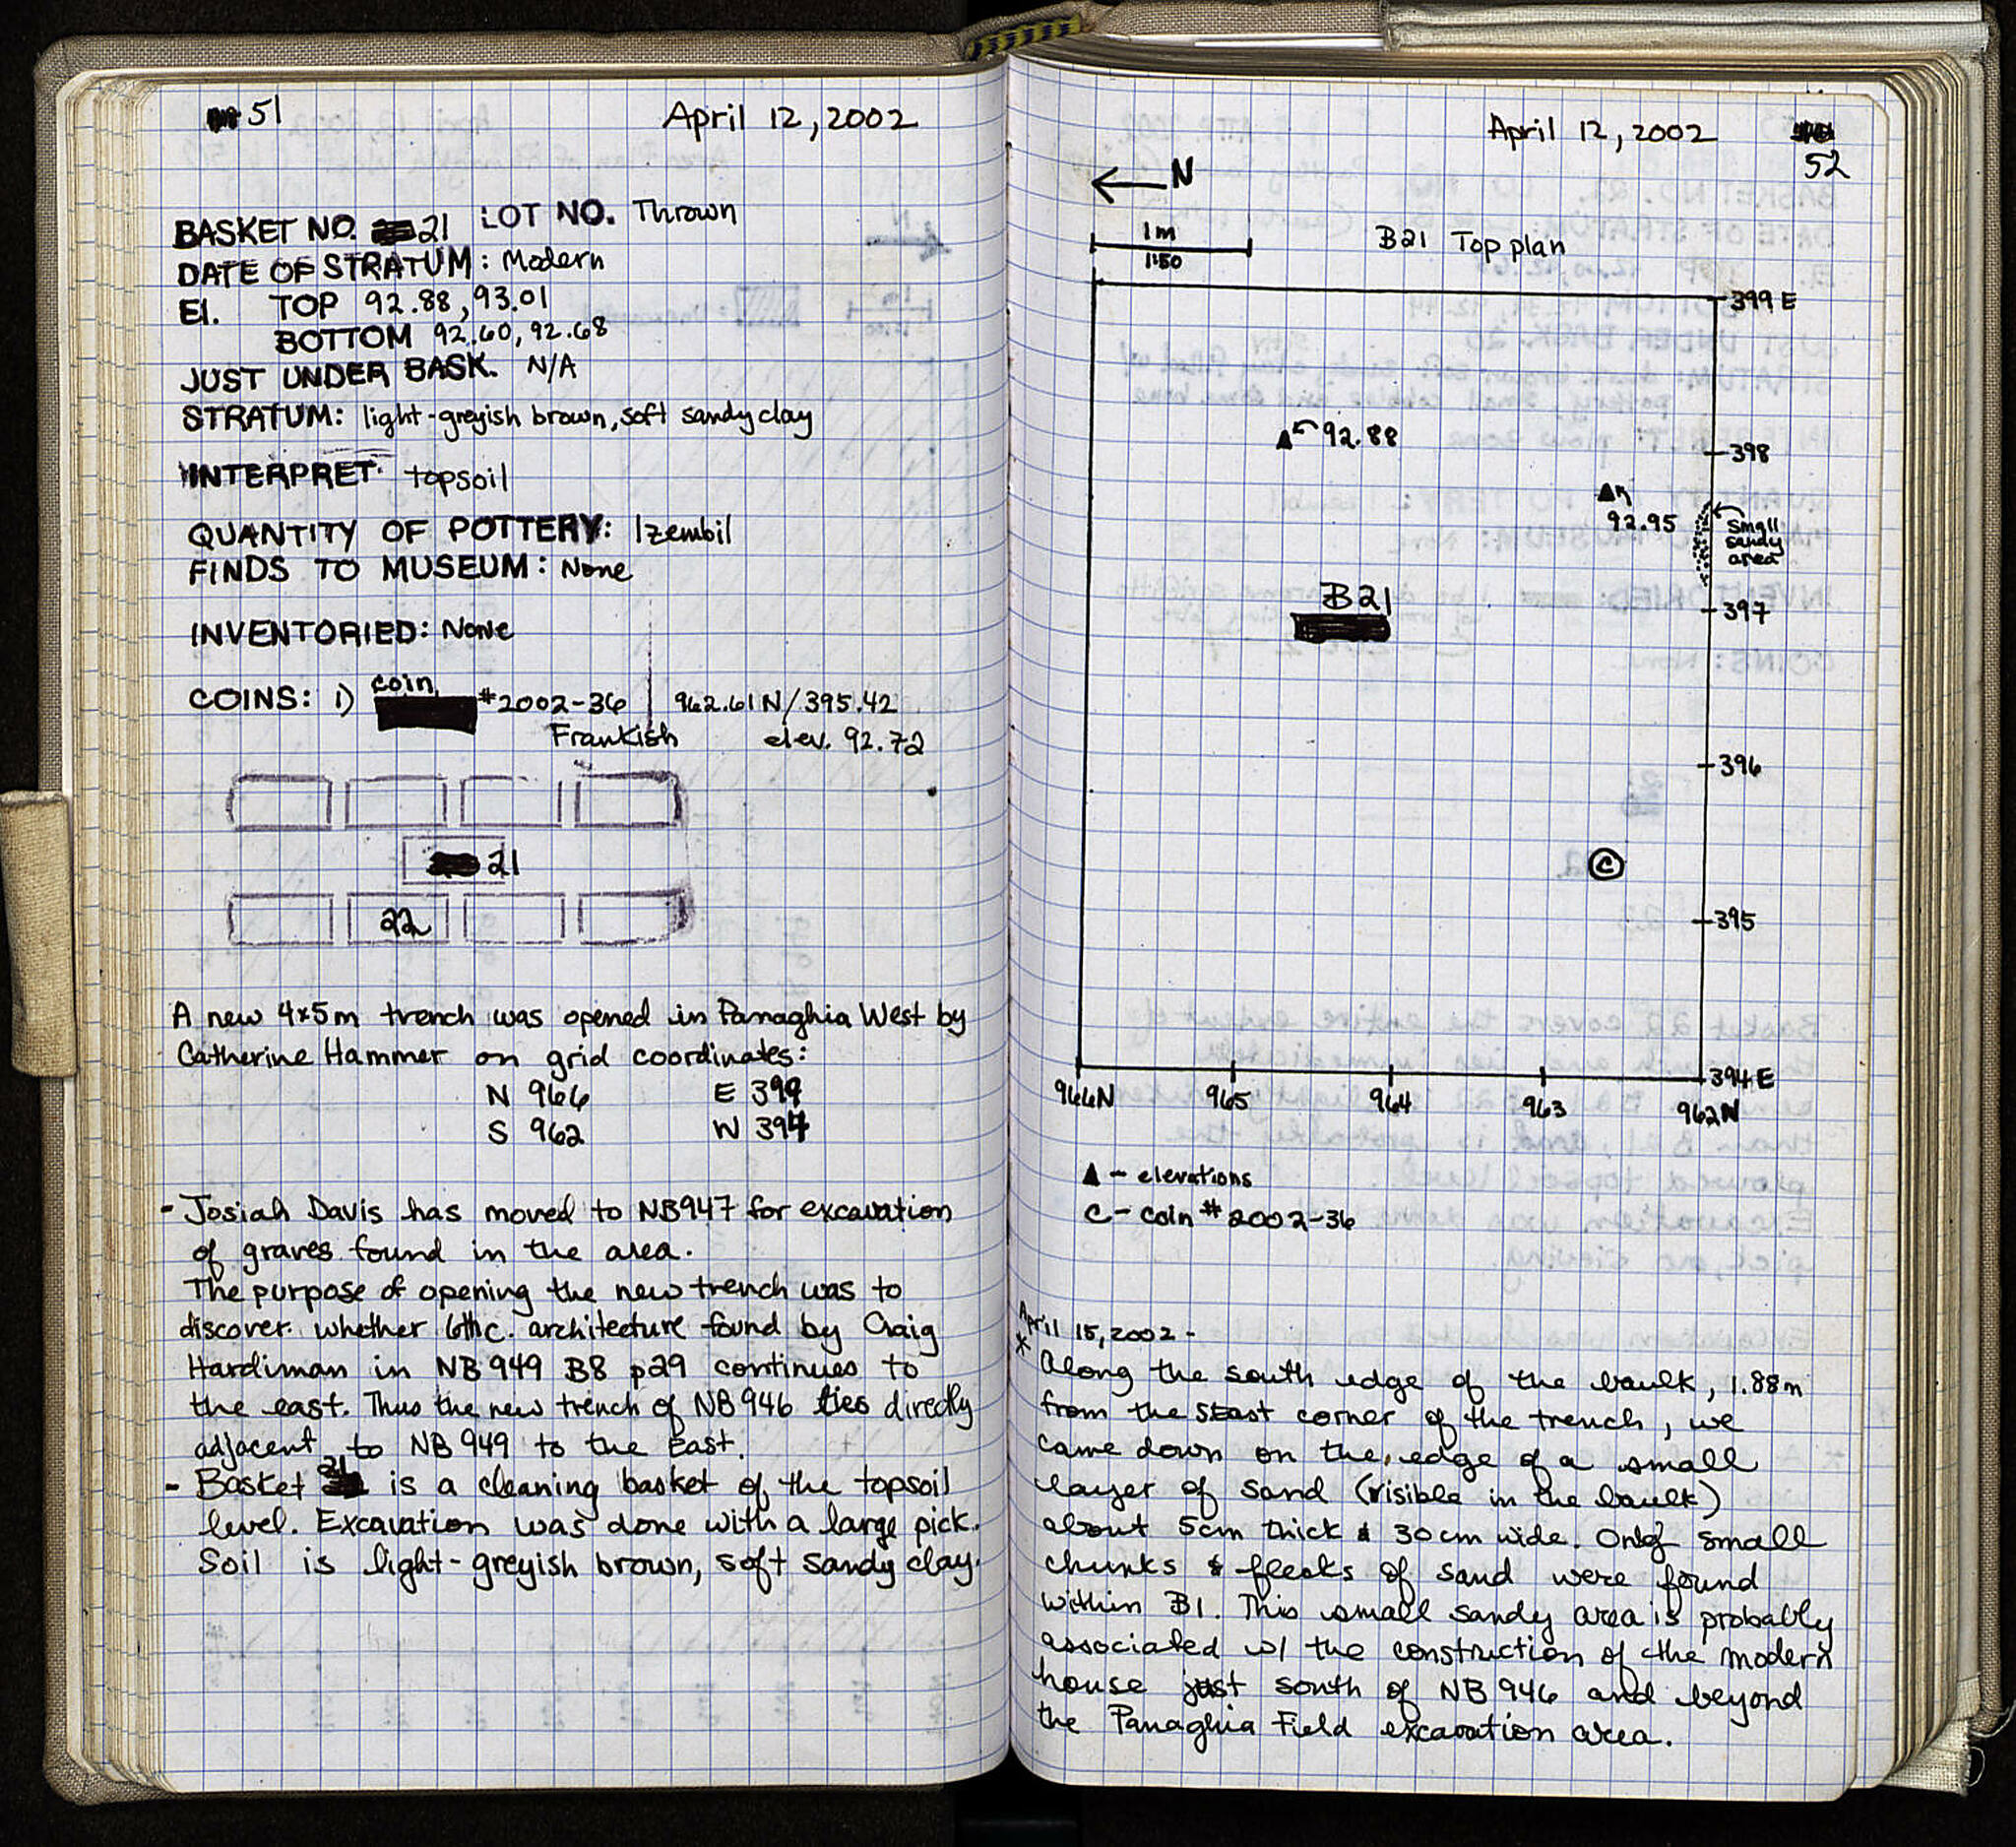 51 April 12, 2002
BASKET NO. 21 LOT NO. Thrown
DATE OF STRATUM: Modern
El. TOP 92.88, 93.01
BOTTOM 92.60, 92.68
JUST UNDER BASK. N/A
STRATUM: light-greyish brown, soft sandy clay
INTERPRET. topsoil
QUANTITY OF POTTERY: 1 zembil
FINDS TO MUSEUM: None
INVENTORIED: None
COINS: 1) coin #2002-36 | 962.61N/395.42
Frankish elev. 92.72
21
22
A new 4x5m trench was opened in Panaghia West by
Catherine Hammer on grid coordinates:
N 966 E 399
S 962 W 394
- Josiah Davis has moved to NB947 for excavation
of graves found in the area.
The purpose of opening the new trench was to
discover whether 6th c. architecture found by Craig
Hardiman in NB 949 B8 p29 continues to
the east. Thus the new trench of NB 946 lies directly
adjacent to NB 949 to the East.
- Basket 21 is a cleaning basket of the topsoil
level. Excavation was done with a large pick.
Soil is light-greyish brown, soft sandy clay.
April 12, 2002
52
N
1m
1:50
B21 Top plan
399 E
92.88
398
92.95
Small
sandy
area
B21
397
396
C
395
394 E
966N 965 964 963 962N
▲ - elevations
C - coin # 2002-36
April 15, 2002 -
* Along the south edge of the baulk, 1.88m
from the SEast corner of the trench, we
came down on the edge of a small
layer of sand (visible in the baulk)
about 5cm thick & 30cm wide. Only small
chunks & flecks of sand were found
within B1. This small sandy area is probably
associated w/ the construction of the modern
house just south of NB 946 and beyond
the Panaghia Field excavation area.